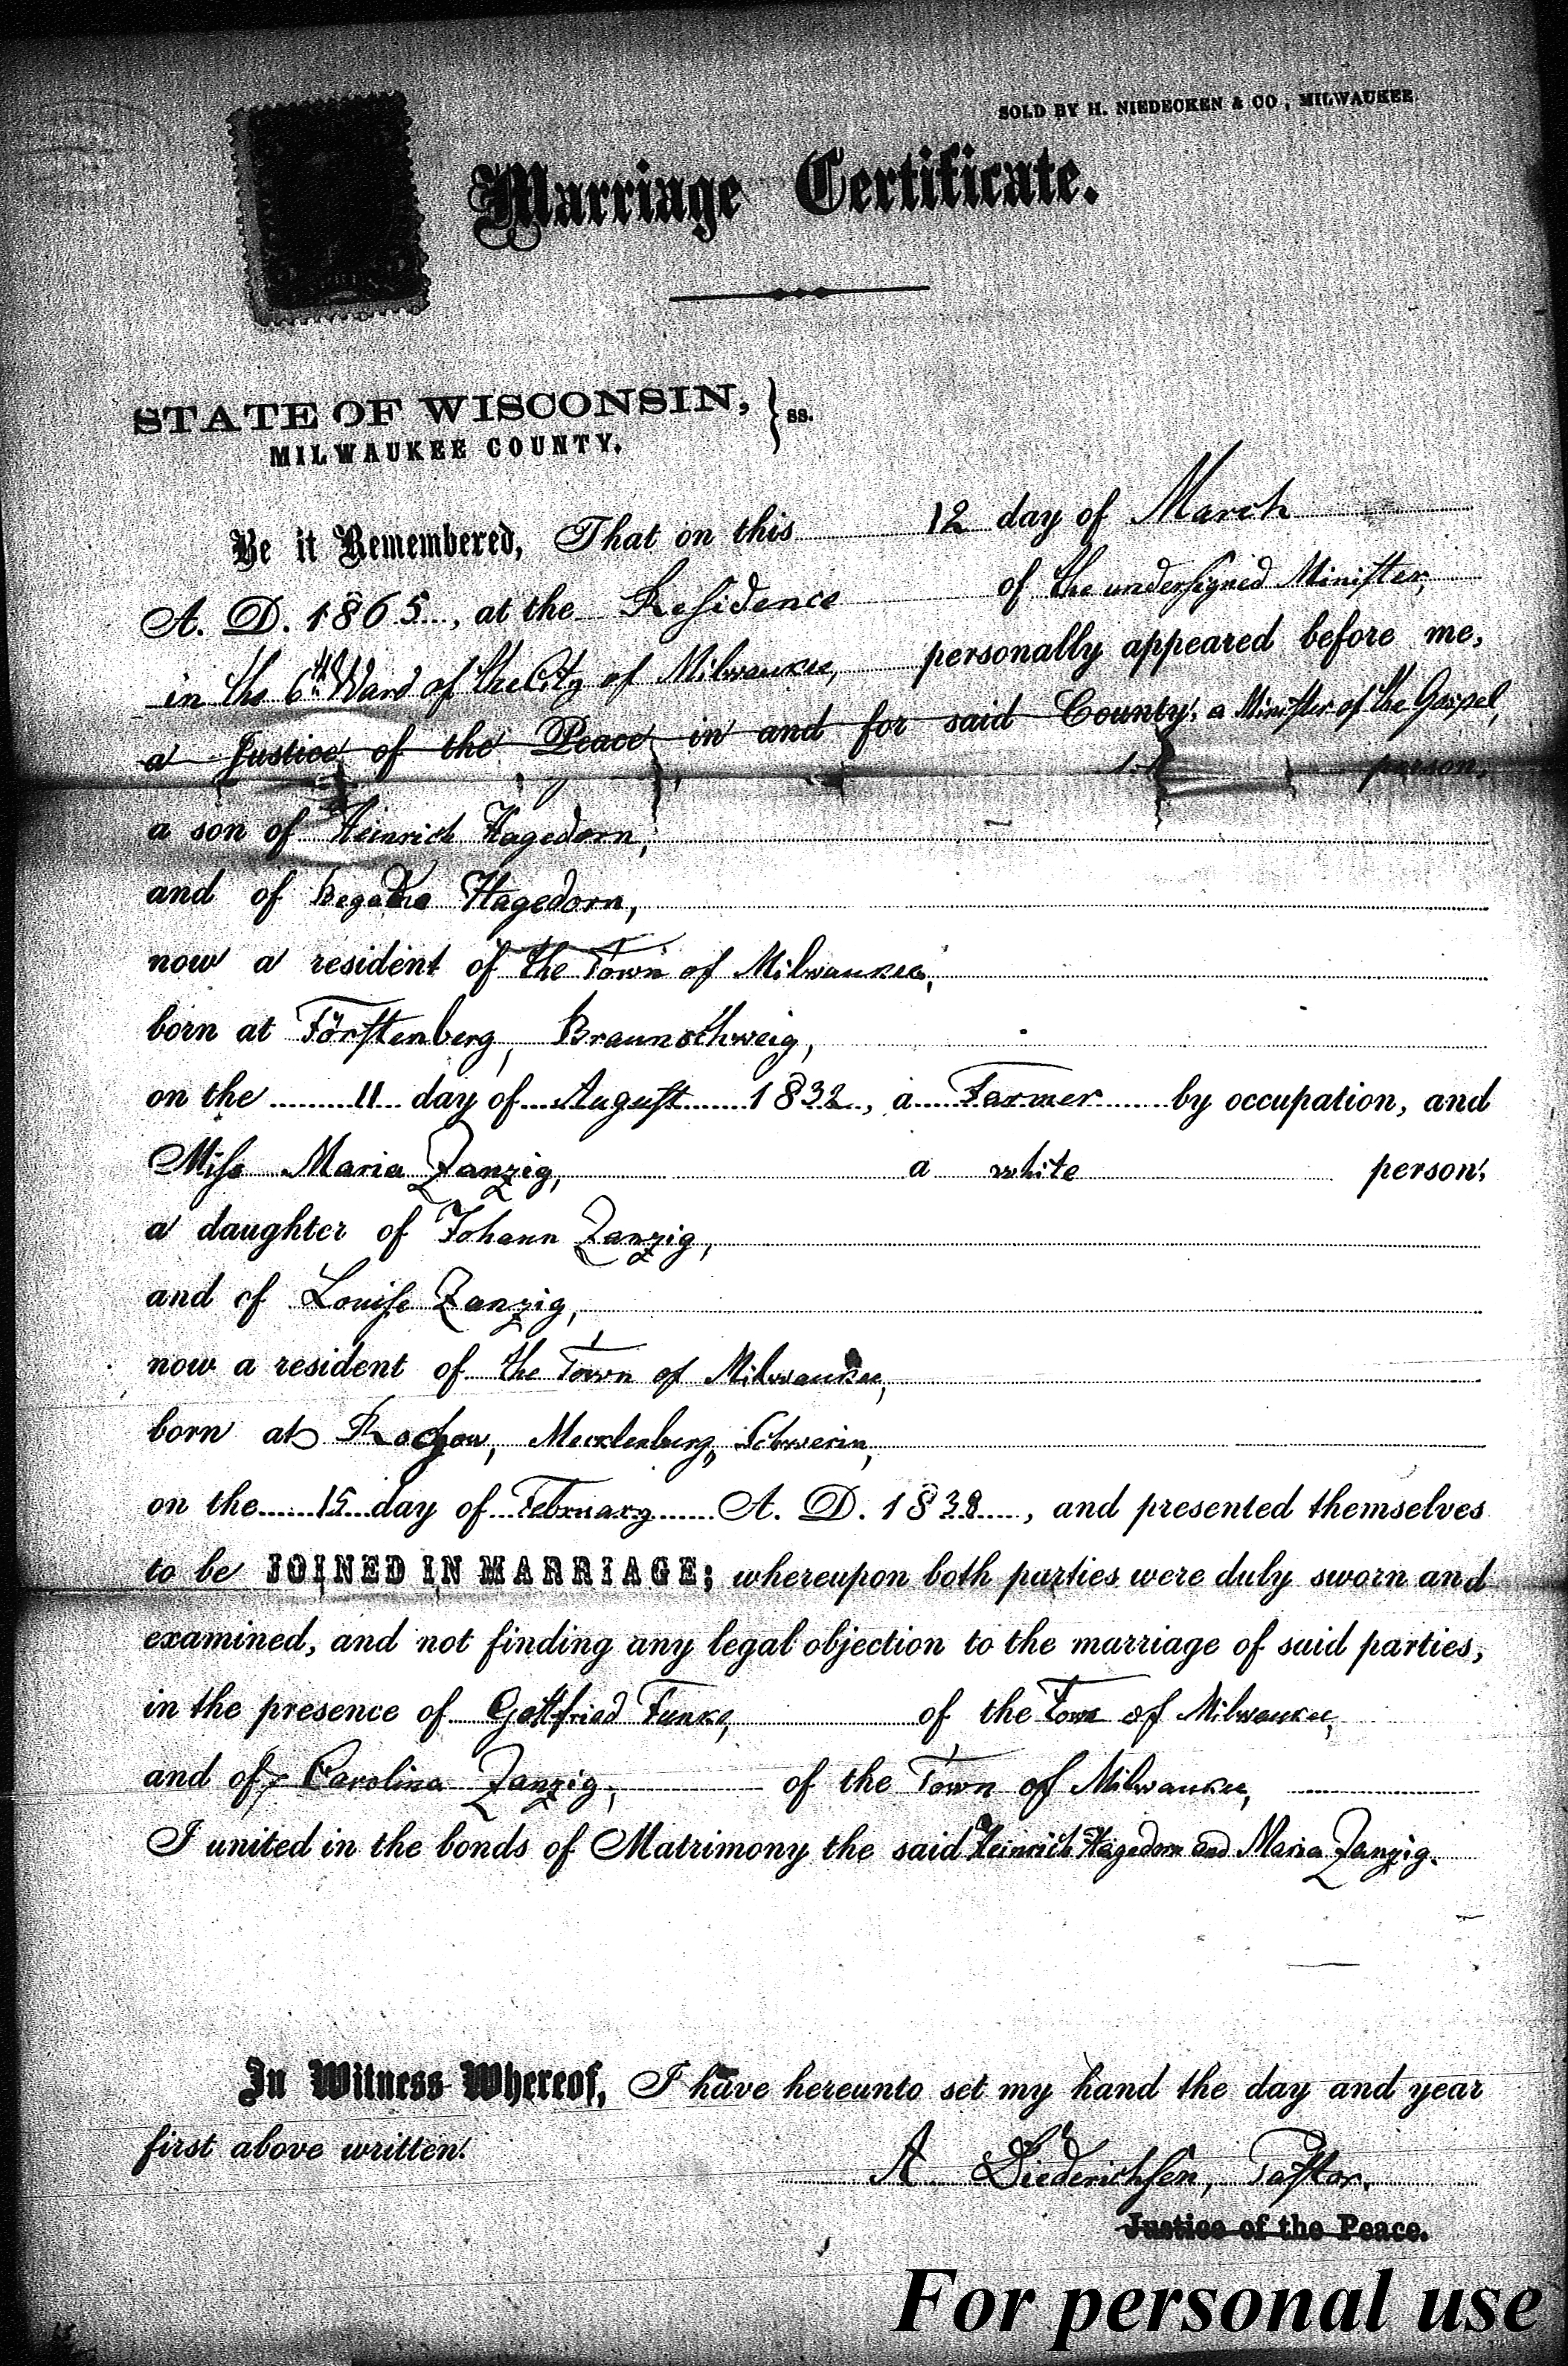 SOLD BY H. NIEDECKEN & CO., MILWAUKEE
Marriage Certificate.
STATE OF WISCONSIN, } ss.
MILWAUKEE COUNTY.
Be it Remembered, That on this 12 day of March
A. D. 1865, at the Residence of the undersigned Minister,
in the 6th Ward of the City of Milwaukee, personally appeared before me,
a Justice of the Peace in and for said County, a Minister of the Gospel,
person,
a son of Heinrich Hagedorn,
and of Hagedorn,
now a resident of the Town of Milwaukee,
born at Förstenberg, Braunschweig,
on the 11 day of August 1832, a Farmer by occupation, and
Miss Maria Zanzig, a white person,
a daughter of Johann Zanzig,
and of Louise Zanzig,
now a resident of the Town of Milwaukee,
born at Mecklenburg, Schwerin,
on the 15 day of February A. D. 1838, and presented themselves
to be JOINED IN MARRIAGE; whereupon both parties were duly sworn and
examined, and not finding any legal objection to the marriage of said parties,
in the presence of Gottfried Funke, of the Town of Milwaukee,
and of Carolina Zanzig, of the Town of Milwaukee,
I united in the bonds of Matrimony the said Heinrich Hagedorn and Maria Zanzig.
In Witness Whereof, I have hereunto set my hand the day and year
first above written.
A. Diederichsen, Pastor.
Justice of the Peace.
For personal use